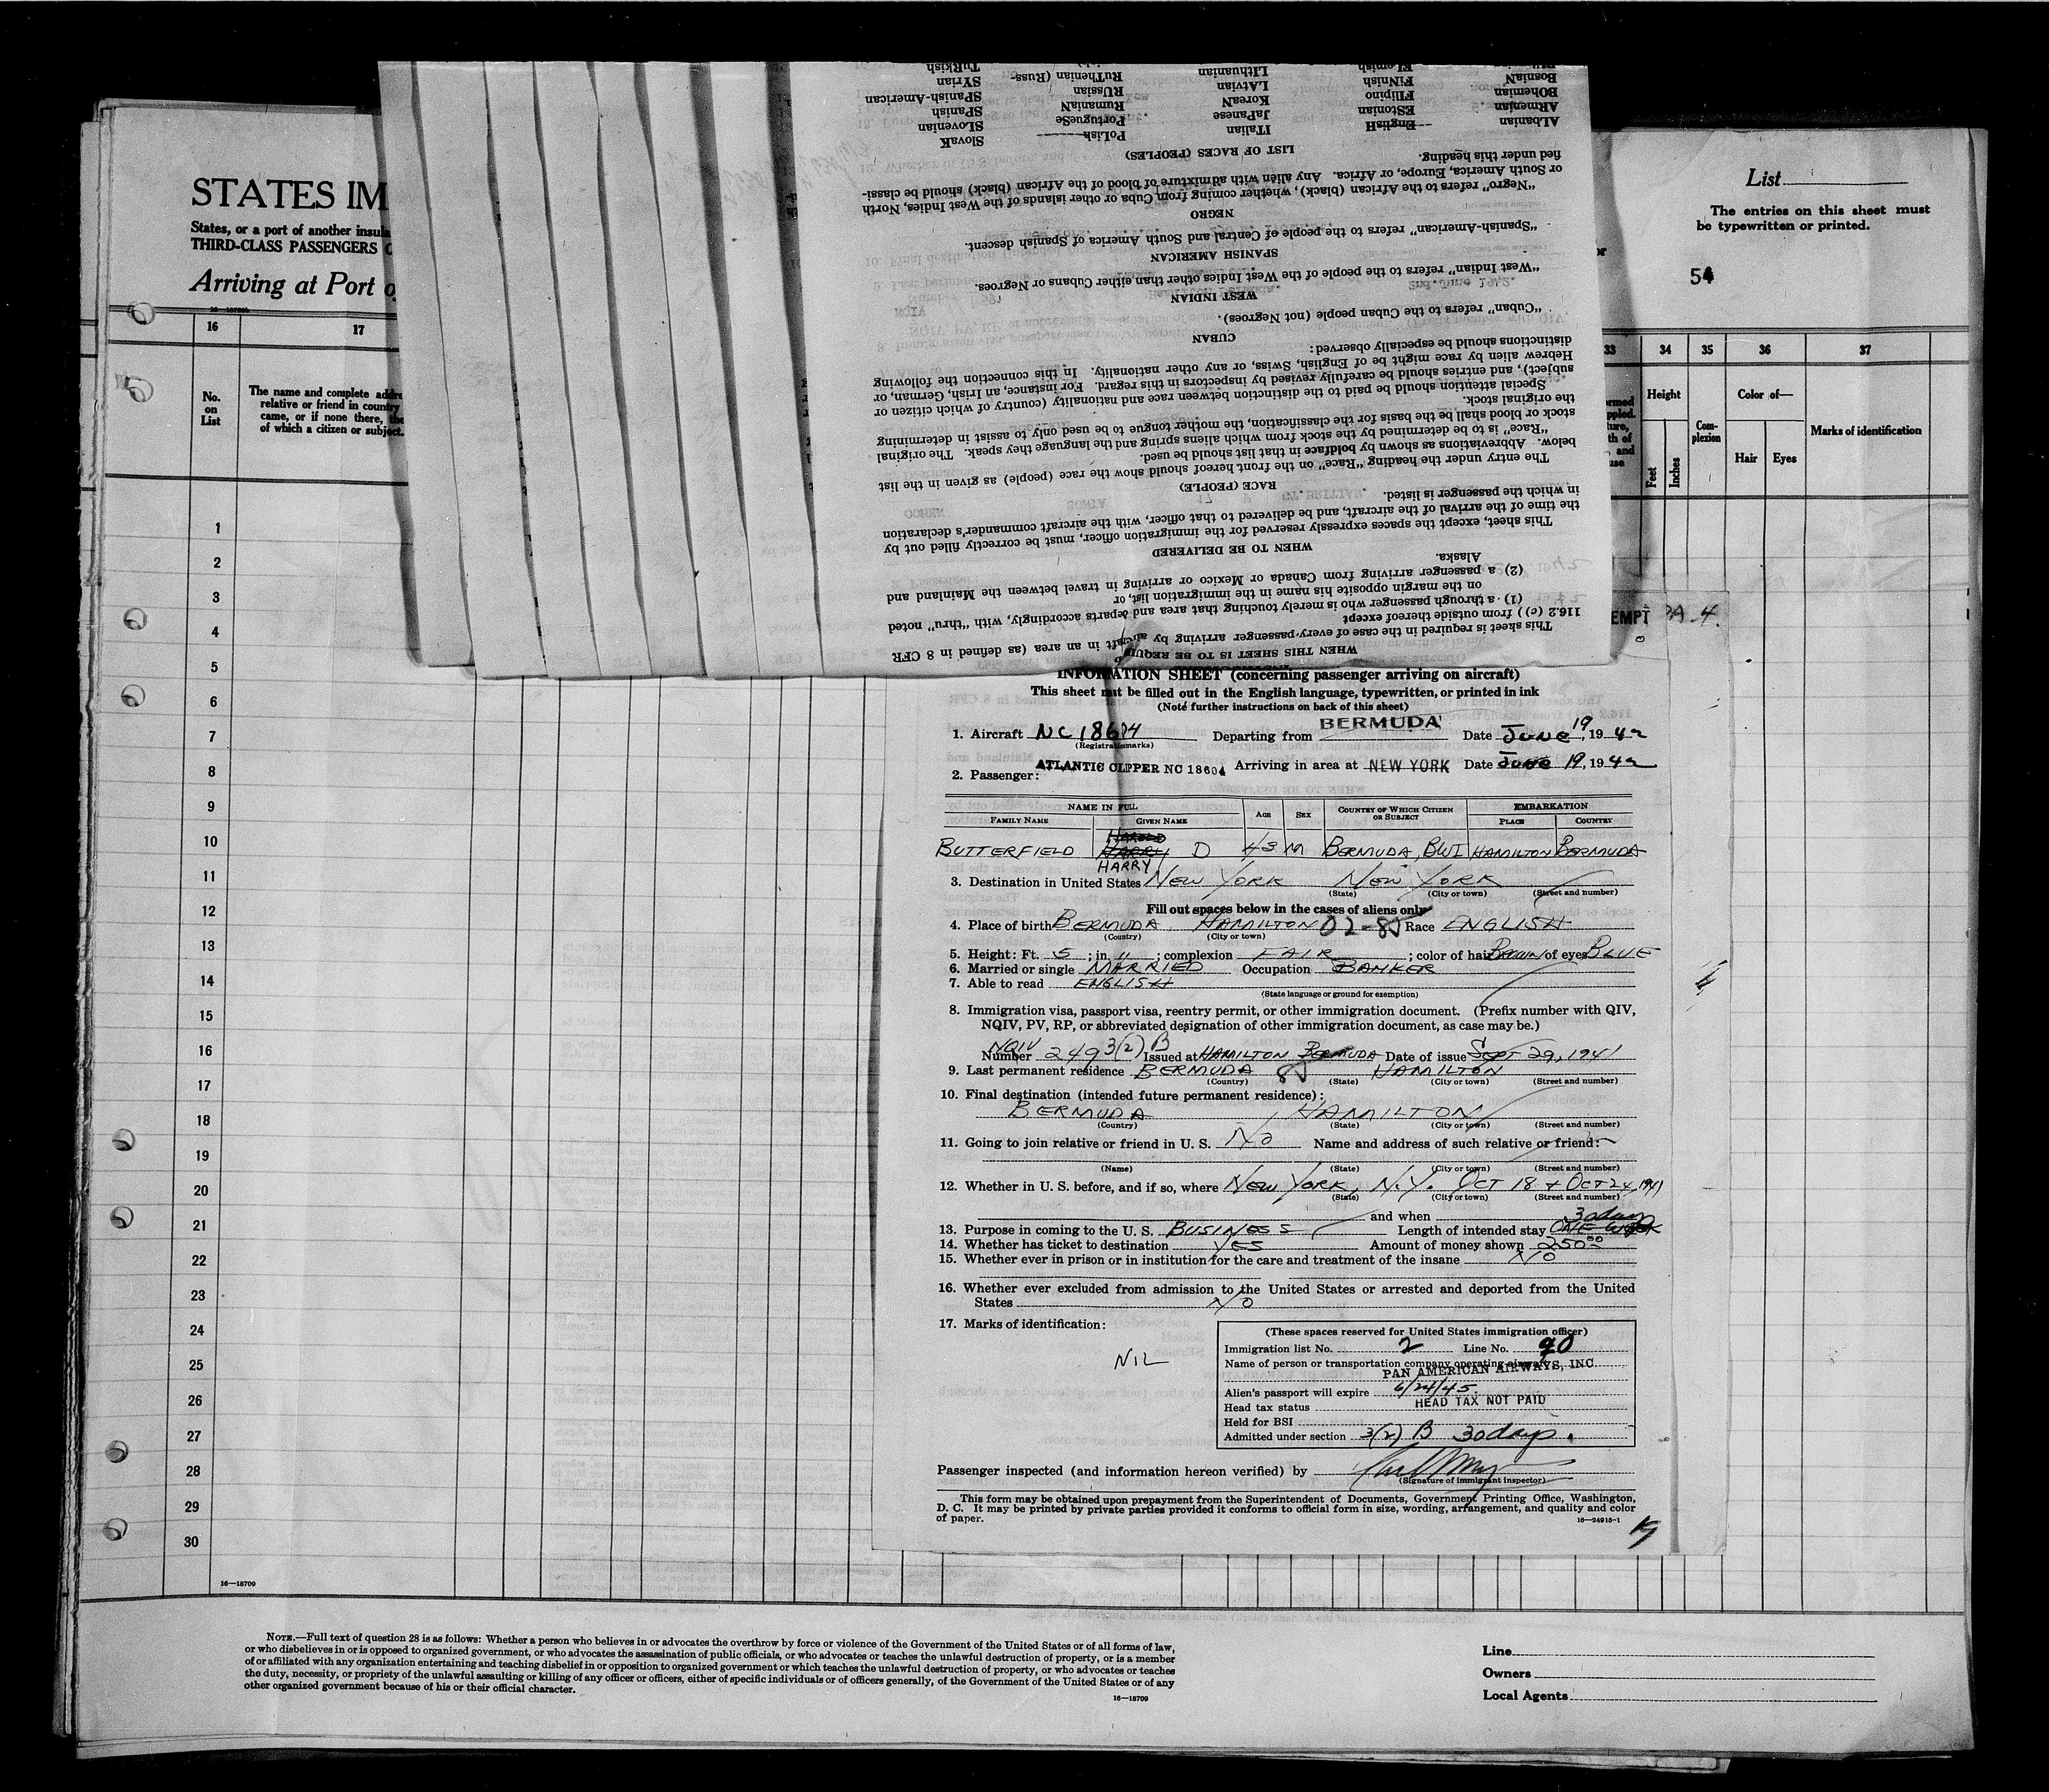 STATES IM
States, or a port of another insula
THIRD-CLASS PASSENGERS
Arriving at Port
16
17
No.
on
List
The name and complete addre
relative or friend in country
came, or if none there, the
of which a citizen or subject.
1
2
3
4
5
6
7
8
9
10
11
12
13
14
15
16
17
18
19
20
21
22
23
24
25
26
27
28
29
30
16—18709
TuRkish
SYrian
SPanish-American
SPanish
SLovenian
SlovaK
RuThenian (Russ-
RUssian
RumaniaN
PortugueSe
PoLish
LIthuanian
LAtvian
KoreaN
JaPanese
ITalian
FlEmish
FiNnish
FIlipino
EStonian
EngliSH
BosniaN
BOhemian
ARmenian
ALbanian
LIST OF RACES (PEOPLES)
fied under this heading.
or South America, Europe, or Africa. Any alien with admixture of blood of the African (black) should be classi-
"Negro" refers to the African (black), whether coming from Cuba or other islands of the West Indies, North
NEGRO
"Spanish-American" refers to the people of Central and South America of Spanish descent.
SPANISH AMERICAN
"West Indian" refers to the people of the West Indies other than either Cubans or Negroes.
WEST INDIAN
"Cuban" refers to the Cuban people (not Negroes).
CUBAN
distinctions should be especially observed:
Hebrew alien by race might be of English, Swiss, or any other nationality. In this connection the following
subject), and entries should be carefully revised by inspectors in this regard. For instance, an Irish, German, or
Special attention should be paid to the distinction between race and nationality (country of which citizen or
the original stock.
stock or blood shall be the basis for the classification, the mother tongue to be used only to assist in determining
"Race" is to be determined by the stock from which aliens spring and the language they speak. The original
below. Abbreviations as shown by boldface in that list should be used.
The entry under the heading "Race" on the front hereof should show the race (people) as given in the list
RACE (PEOPLE)
in which the passenger is listed.
the time of the arrival of the aircraft, and be delivered to that officer, with the aircraft commander's declaration
This sheet, except the spaces expressly reserved for the immigration officer, must be correctly filled out by
WHEN TO BE DELIVERED
Alaska.
(2) a passenger arriving from Canada or Mexico or arriving in travel between the Mainland and
on the margin opposite his name in the immigration list, or
(1) a through passenger who is merely touching that area and departs accordingly, with "thru" noted
116.2 (c)) from outside thereof except
This sheet is required in the case of every passenger arriving by aircraft in an area (as defined in 8 CFR
WHEN THIS SHEET IS TO BE REQUI
List
The entries on this sheet must
be typewritten or printed.
54
33
34
35
36
37
Height
Feet
Inches
Com-
plexion
Color of—
Hair
Eyes
Marks of identification
EMPT
INFORMATION SHEET (concerning passenger arriving on aircraft)
This sheet must be filled out in the English language, typewritten, or printed in ink
(Note further instructions on back of this sheet)
1. Aircraft NC 18604 Departing from BERMUDA Date JUNE 19, 1942
(Registration marks)
ATLANTIC CLIPPER NC 18604 Arriving in area at NEW YORK Date JUNE 19, 1942
2. Passenger:
NAME IN FULL
FAMILY NAME GIVEN NAME AGE SEX COUNTRY OF WHICH CITIZEN OR SUBJECT EMBARKATION PLACE COUNTRY
HAROLD
BUTTERFIELD HARRY D 43 M BERMUDA, BWI HAMILTON BERMUDA
HARRY
3. Destination in United States NEW YORK NEW YORK
(State) (City or town) (Street and number)
Fill out spaces below in the cases of aliens only
4. Place of birth BERMUDA, HAMILTON 02-85 Race ENGLISH
(Country) (City or town)
5. Height: Ft. 5; in. 11; complexion FAIR; color of hair BROWN of eyes BLUE
6. Married or single MARRIED Occupation BANKER
7. Able to read ENGLISH
(State language or ground for exemption)
8. Immigration visa, passport visa, reentry permit, or other immigration document. (Prefix number with QIV,
NQIV, PV, RP, or abbreviated designation of other immigration document, as case may be.)
NQIV
Number 249 3(2) B Issued at HAMILTON BERMUDA Date of issue SEPT 29, 1941
9. Last permanent residence BERMUDA 85 HAMILTON
(Country) (State) (City or town) (Street and number)
10. Final destination (intended future permanent residence):
BERMUDA, HAMILTON
(Country) (State) (City or town) (Street and number)
11. Going to join relative or friend in U. S. NO Name and address of such relative or friend:
(Name) (State) (City or town) (Street and number)
12. Whether in U. S. before, and if so, where NEW YORK, N.Y. OCT 18 + OCT 24, 1941
(State) (City or town) (Street and number)
and when
30 days
13. Purpose in coming to the U. S. BUSINESS Length of intended stay ONE WEEK
14. Whether has ticket to destination YES Amount of money shown 250.00
15. Whether ever in prison or in institution for the care and treatment of the insane NO
16. Whether ever excluded from admission to the United States or arrested and deported from the United
States NO
17. Marks of identification:
NIL
(These spaces reserved for United States immigration officer)
Immigration list No. 2 Line No. 90
Name of person or transportation company operating aircraft
PAN AMERICAN AIRWAYS, INC
Alien's passport will expire 6/24/45
Head tax status HEAD TAX NOT PAID
Held for BSI
Admitted under section 3(2) B 30 days.
Passenger inspected (and information hereon verified) by
(Signature of immigrant inspector)
This form may be obtained upon prepayment from the Superintendent of Documents, Government Printing Office, Washington,
D. C. It may be printed by private parties provided it conforms to official form in size, wording, arrangement, and quality and color
of paper.
16—24915-1
NOTE.—Full text of question 28 is as follows: Whether a person who believes in or advocates the overthrow by force or violence of the Government of the United States or of all forms of law,
or who disbelieves in or is opposed to organized government, or who advocates the assassination of public officials, or who advocates or teaches the unlawful destruction of property, or is a member
of or affiliated with any organization entertaining and teaching disbelief in or opposition to organized government or which teaches the unlawful destruction of property, or who advocates or teaches
the duty, necessity, or propriety of the unlawful assaulting or killing of any officer or officers, either of specific individuals or of officers generally, of the Government of the United States or of any
other organized government because of his or their official character.
16—18709
Line
Owners
Local Agents